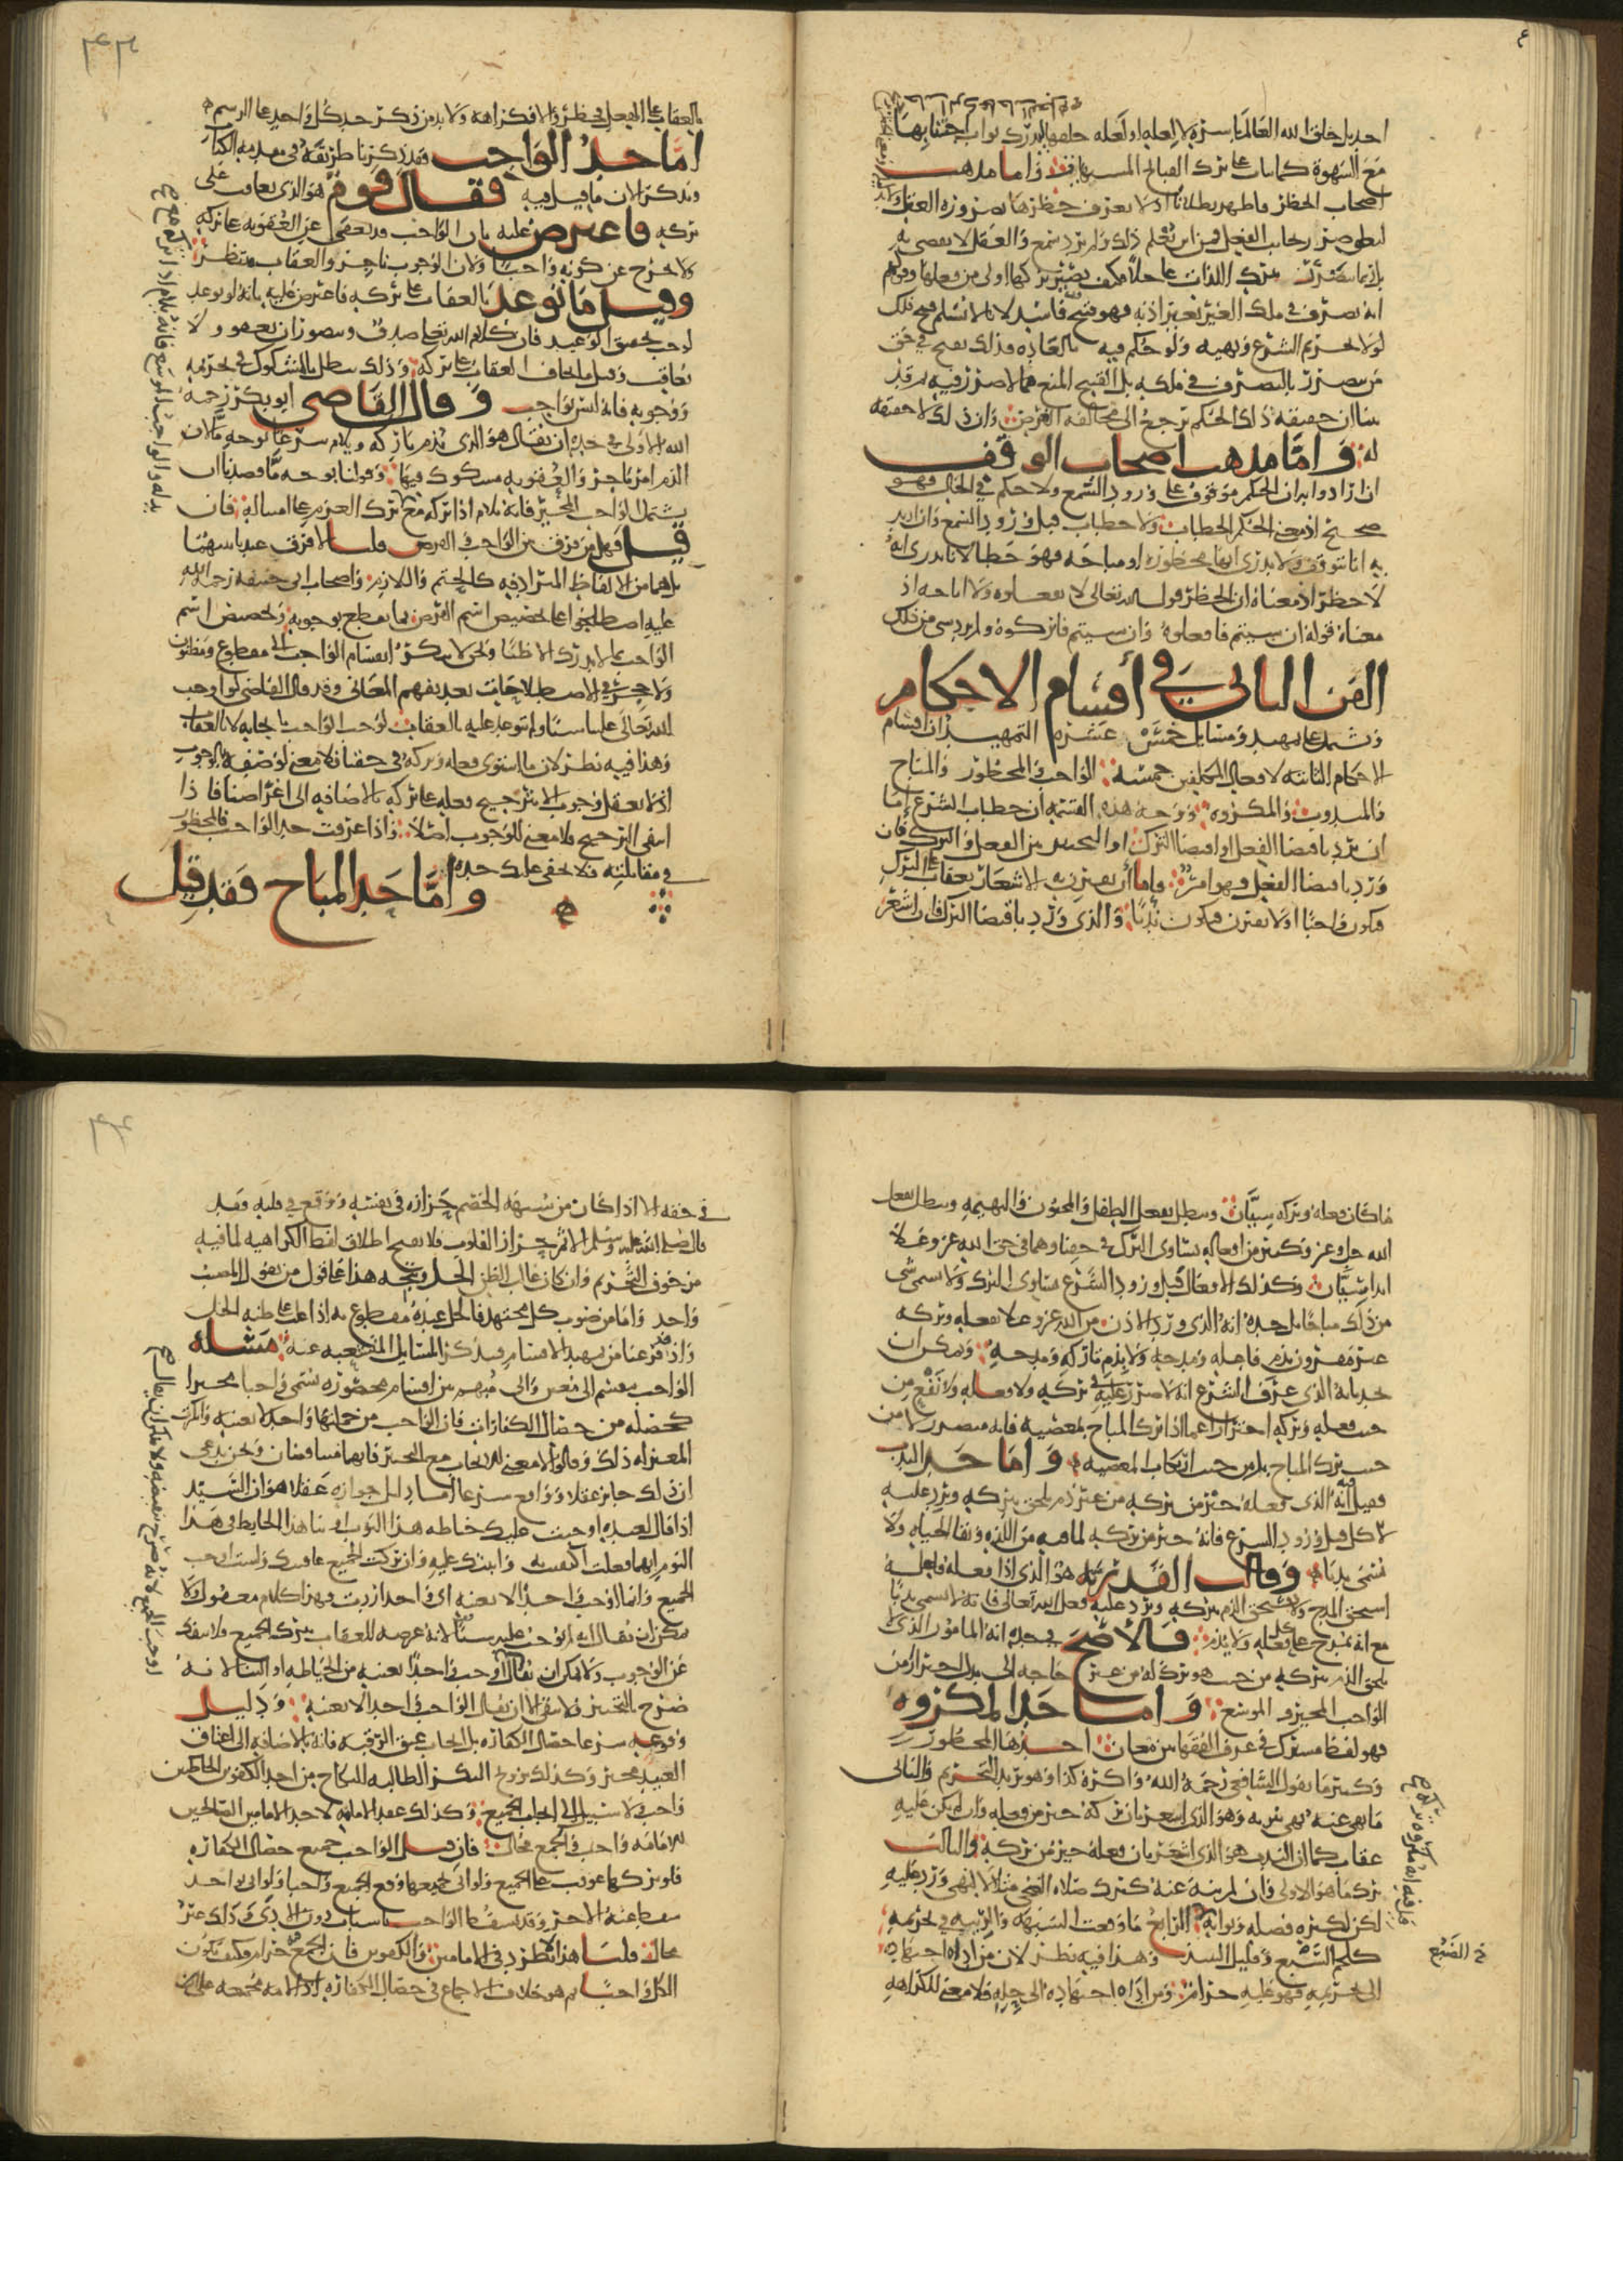 احد بل خلق الله العالم باسره لا لعلة او لعله خلقها ليدرك ثواب اجتنابها
مع الشهوة كما يثاب على ترك القبائح المشتهاة واما مذهب
اصحاب الحظر فاظهر بطلانا اذ لا يعرف حظرها بضرورة العقل ولا
فمن اين يعلم ذلك ولم يرد سمع والعقل لا يقضي به
بل ربما يتضرر بترك اللذات عاجلا فكيف يصير تركها اولى من فعلها وقولهم
انه تصرف في ملك الغير بغير اذنه فهو قبيح فاسد لانا لا نسلم قبح ذلك
لولا تحريم الشرع ونهيه ولو حكم فيه بالعادة فذلك يقبح في حق
من تضرر بالتصرف في ملكه بل القبيح المنع مما لا ضرر فيه ثم قد
بينا ان حقيقة ذلك الحكم ترجع الى مخالفة الغرض وان ذلك لا حقيقة
له واما مذهب اصحاب الوقف
ان ارادوا به ان الحكم موقوف على ورود السمع ولا حكم في الحال فهو
صحيح اذ معنى الحكم الخطاب ولا خطاب قبل ورود السمع وان اريد
به انا نتوقف ولا ندري انها محظورة او مباحة فهو خطا لانا ندري انه
لا حظر اذ معناه ان الحظر قول الله تعالى لا تفعلوه ولا اباحة اذ
معناه قوله ان شيتم فافعلوه وان شيتم فاتركوه ولم يرد شي من ذلك
الفن الثاني في أقسام الاحكام
ويشتمل على تمهيد ومسايل خمس عشرة التمهيد ان اقسام
الاحكام الثابتة لافعال المكلفين خمسة الواجب والمحظور والمباح
والمندوب والمكروه ووجه هذه القسمة ان خطاب الشرع إما
ان يرد باقتضا الفعل او اقتضا الترك او التخيير بين الفعل والترك فان
ورد باقتضا الفعل فهو امر فاما أن يقترن به الاشعار بعقاب على الترك
فيكون واجبا او لا يقترن فيكون ندبا والذي ورد باقتضا الترك فان اشعر
بالعقاب على الفعل فحظر والا فكراهة ولا بد من ذكر حد كل واحد على الرسم
امّا حد الواجب فقد ذكرنا طرفا منه في مقدمة الكتاب
ونذكر الان ما قيل فيه فقال قوم هو الذي يعاقب على
تركه فاعترض عليه بان الواجب قد يعفى عن العقوبة على تركه
ولا يخرج عن كونه واجبا ولان الوجوب ناجز والعقاب منتظر
وقيل ما توعد بالعقاب على تركه فاعترض عليه بانه لو توعد
لوجب تحقق الوعيد فان كلام الله تعالى صدق ويتصور ان يعفو ولا
يعاقب وقيل ما يخاف العقاب على تركه وذلك يبطل بالمشكوك في تحريمه
ووجوبه فانه ليس بواجب وقال القاضي ابو بكر رحمه
الله الاولى في حده ان يقال هو الذي يذم تاركه ويلام شرعا بوجه ما لان
الذم امر ناجز والعقوبة مشكوك فيها وقولنا بوجه ما قصدنا ان
يشمل الواجب المخير فانه يلام اذا تركه مع ترك العزم على امتثاله فان
قيل فهل من فرق بين الواجب والفرض قلنا لا فرق عندنا بينهما
بل هما من الالفاظ المترادفة كالحتم واللازم واصحاب ابي حنيفة رحمة الله
عليه اصطلحوا على تخصيص اسم الفرض بما يقطع بوجوبه وتخصيص اسم
الواجب بما لا يدرك الا ظنا ونحن لا ننكر انقسام الواجب الى مقطوع ومظنون
ولا حجر في الاصطلاحات بعد تفهم المعاني وقد قال القاضي لو اوجب
الله تعالى علينا شيئا ولم يتوعد عليه بالعقاب لوجب الواجب بايجابه لا بالعقاب
وهذا فيه نظر لان ما استوى فعله وتركه في حقنا فلا معنى لوصفه بالوجوب
اذ لا يعقل وجوب الا بترجيح فعله على تركه بالاضافة الى اغراضنا فاذا
انتفى الترجيح فلا معنى للوجوب اصلا واذا عرفت حد الواجب فالمحظور
في مقابلته فلا يخفى عليك حده وامّا حد المباح فقد قيل
ما كان فعله وتركه سيّان ويبطل بفعل الطفل والمجنون والبهيمة ويبطل بفعل
الله جل وعز وكثير من افعاله يساوي الترك في حقنا وهما في حق الله عز وعلا
ابدا سيان وكذلك الافعال قبل ورود الشرع يساوي الترك ولا يسمى شي
من ذلك مباحا بل حده انه الذي ورد الاذن من الله عز وعلا بفعله وتركه
غير مقرون بذم فاعله ومدحه ولا بذم تاركه ومدحه ويمكن ان
يحد بانه الذي عرف الشرع انه لا ضرر عليه في تركه ولا فعله ولا نفع من
حيث فعله وتركه احترازا عما اذا ترك المباح بمعصية فانه يتضرر لا من
حيث ترك المباح بل من حيث ارتكاب المعصية واما حد الندب
فقيل فيه انه الذي فعله خير من تركه من غير ذم يلحق بتركه ويرد عليه
الاكل قبل ورود الشرع فانه خير من تركه لما فيه من اللذة وبقا الحياة ولا
يسمى ندبا وقالت القدرية هو الذي اذا فعله فاعله
استحق المدح ولا يستحق الذم بتركه ويرد عليه فعل الله تعالى فانه لا يسمى ندبا
مع انه يمدح على كل فعله ولا يذم فالأصح في حده انه المامور الذي لا
يلحق الذم بتركه من حيث هو ترك له من غير حاجة الى بدل احترازا من
الواجب المخير والموسع واما حد المكروه
فهو لفظ مشترك في عرف الفقها بين معان احدها المحظور
وكثيرا ما يقول الشافعي رحمه الله واكره كذا وهو يريد التحريم والثاني
ما نهي عنه نهي تنزيه وهو الذي اشعر بان تركه خير من فعله وان لم يكن عليه
عقاب كما ان الندب هو الذي اشعر بان فعله خير من تركه والثالث
ترك ما هو الاولى وان لم ينه عنه كترك صلاة الضحى مثلا لا لنهي ورد عليه
لكن لكثرة فضله وثوابه الرابع ما وقعت الشبهة والريبة في تحريمه
كلحم السبع وقليل النبيذ وهذا فيه نظر لان من اداه اجتهاده
الى تحريمه فهو عليه حرام ومن اداه اجتهاده الى حله فلا معنى للكراهة
خ الضبع
في حقه الا اذا كان من شبهة الخصم حزازة في نفسه ووقع في قلبه وقد
قال صلى الله عليه وسلم الاثم حزاز القلوب فلا يقبح اطلاق لفظ الكراهية لما فيه
من خوف التحريم وان كان غالب الظن الحل ويتجه هذا على قول من يقول المصيب
واحد واما من صوب كل مجتهد فالحل عنده مقطوع به اذا غلب على ظنه الحل
واذ قد فرغنا من تمهيد الاقسام فنذكر المسايل المتشعبة عنه مسألة
الواجب ينقسم الى معين والى مبهم بين اقسام محصورة يسمى واجبا مخيرا
كخصلة من خصال الكفارات فان الواجب من جملتها واحد لا بعينه وانكرت
المعتزلة ذلك وقالوا لا معنى للايجاب مع التخيير فانهما متناقضان ونحن ندعي
ان ذلك جايز عقلا وواقع شرعا اما دليل جوازه عقلا هو ان السيد
اذا قال لعبده اوجبت عليك خياطة هذا الثوب او بنا هذا الحايط في هذا
اليوم ايهما فعلت اكتفيت به واثبتك عليه وان تركت الجميع عاقبتك ولست اوجب
الجميع وانما اوجب واحدا لا بعينه اي واحد اردت فهذا كلام معقول ولا
يمكن ان يقال انه لم يوجب عليه شيئا لانه عرضه للعقاب بترك الجميع فلا ينفك
عن الوجوب ولا يمكن ان يقال اوجب واحدا بعينه من الخياطة او البنا لانه
صرح بالتخيير فلا يبقى الا ان يقال الواجب واحد لا بعينه ودليل
وقوعه شرعا خصال الكفارة بل ايجاب عتق الرقبة فانه بالاضافة الى اعتاق
العبيد مخير وكذلك تزويج البكر الطالبة للنكاح من احد الكفوين الخاطبين
واجب ولا سبيل الى ايجاب الجميع وكذلك عقد الامامة لاحد الامامين الصالحين
للامامة واجب والجمع محال فان قيل الواجب جميع خصال الكفارة
فلو تركها عوقب على الجميع ولو اتى بجميعها وقع الجميع واجبا ولو اتى بواحد
سقط عنه الاخر وقد يسقط الواجب باسباب دون الادى وذلك غير
محال قلنا هذا لا يطرد في الامامين والكفوين فان الجمع فيه حرام فكيف يكون
الكل واجبا ثم هو خلاف الاجماع في خصال الكفارة اذ الامة مجمعة على ان